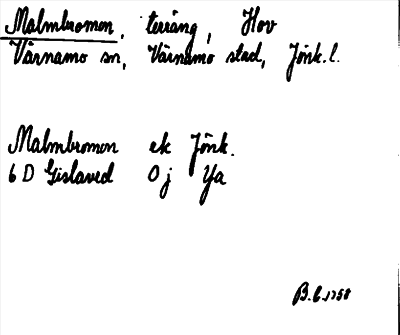 Malmbromon, terräng, Hov
Värnamo sn, Värnamo stad, Jönk.l.
Malmbromon ek Jönk.
6 D Gislaved 0 j Ya
B.b.1958